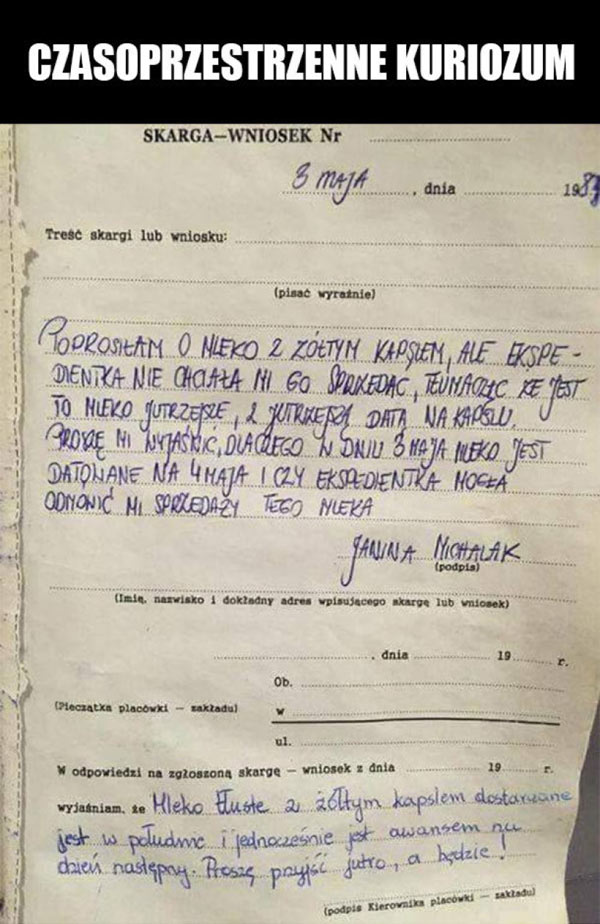 CZASOPRZESTRZENNE KURIOZUM
SKARGA—WNIOSEK Nr
3 MAJA , dnia 1983
Treść skargi lub wniosku:
(pisać wyraźnie)
POPROSIŁAM O MLEKO Z ŻÓŁTYM KAPSLEM, ALE EKSPE-
DIENTKA NIE CHCIAŁA MI GO SPRZEDAĆ, TŁUMACZĄC ŻE JEST
TO MLEKO JUTRZEJSZE, Z JUTRZEJSZĄ DATĄ NA KAPSLU.
PROSZĘ MI WYJAŚNIĆ, DLACZEGO W DNIU 3 MAJA MLEKO JEST
DATOWANE NA 4 MAJA I CZY EKSPEDIENTKA MOGŁA
ODMÓWIĆ MI SPRZEDAŻY TEGO MLEKA
JANINA MICHALAK
(podpis)
(Imię, nazwisko i dokładny adres wpisującego skargę lub wniosek)
, dnia 19 r.
Ob.
(Pieczątka placówki — zakładu) w
ul.
W odpowiedzi na zgłoszoną skargę — wniosek z dnia 19 r.
wyjaśniam, że Mleko tłuste z żółtym kapslem dostarczane
jest w południe i jednocześnie jest awansem na
dzień następny. Proszę przyjść jutro, a będzie!
(podpis Kierownika placówki — zakładu)